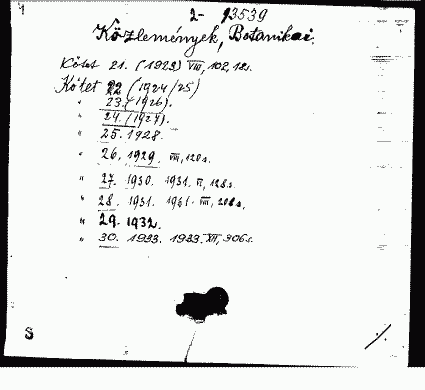 2- 13539
Közlemények, Botanikai.
Kötet 21. (1923) VIII, 102, 12 s.
Kötet 22 (1924/25)
" 23. (1926).
" 24. (1927).
" 25. 1928.
" 26. 1929. VIII, 120 s.
" 27. 1930. 1931. VI, 128 s.
" 28. 1931. 1931. VIII, 208 s.
" 29. 1932.
" 30. 1933. 1933. XII, 306 s.
S